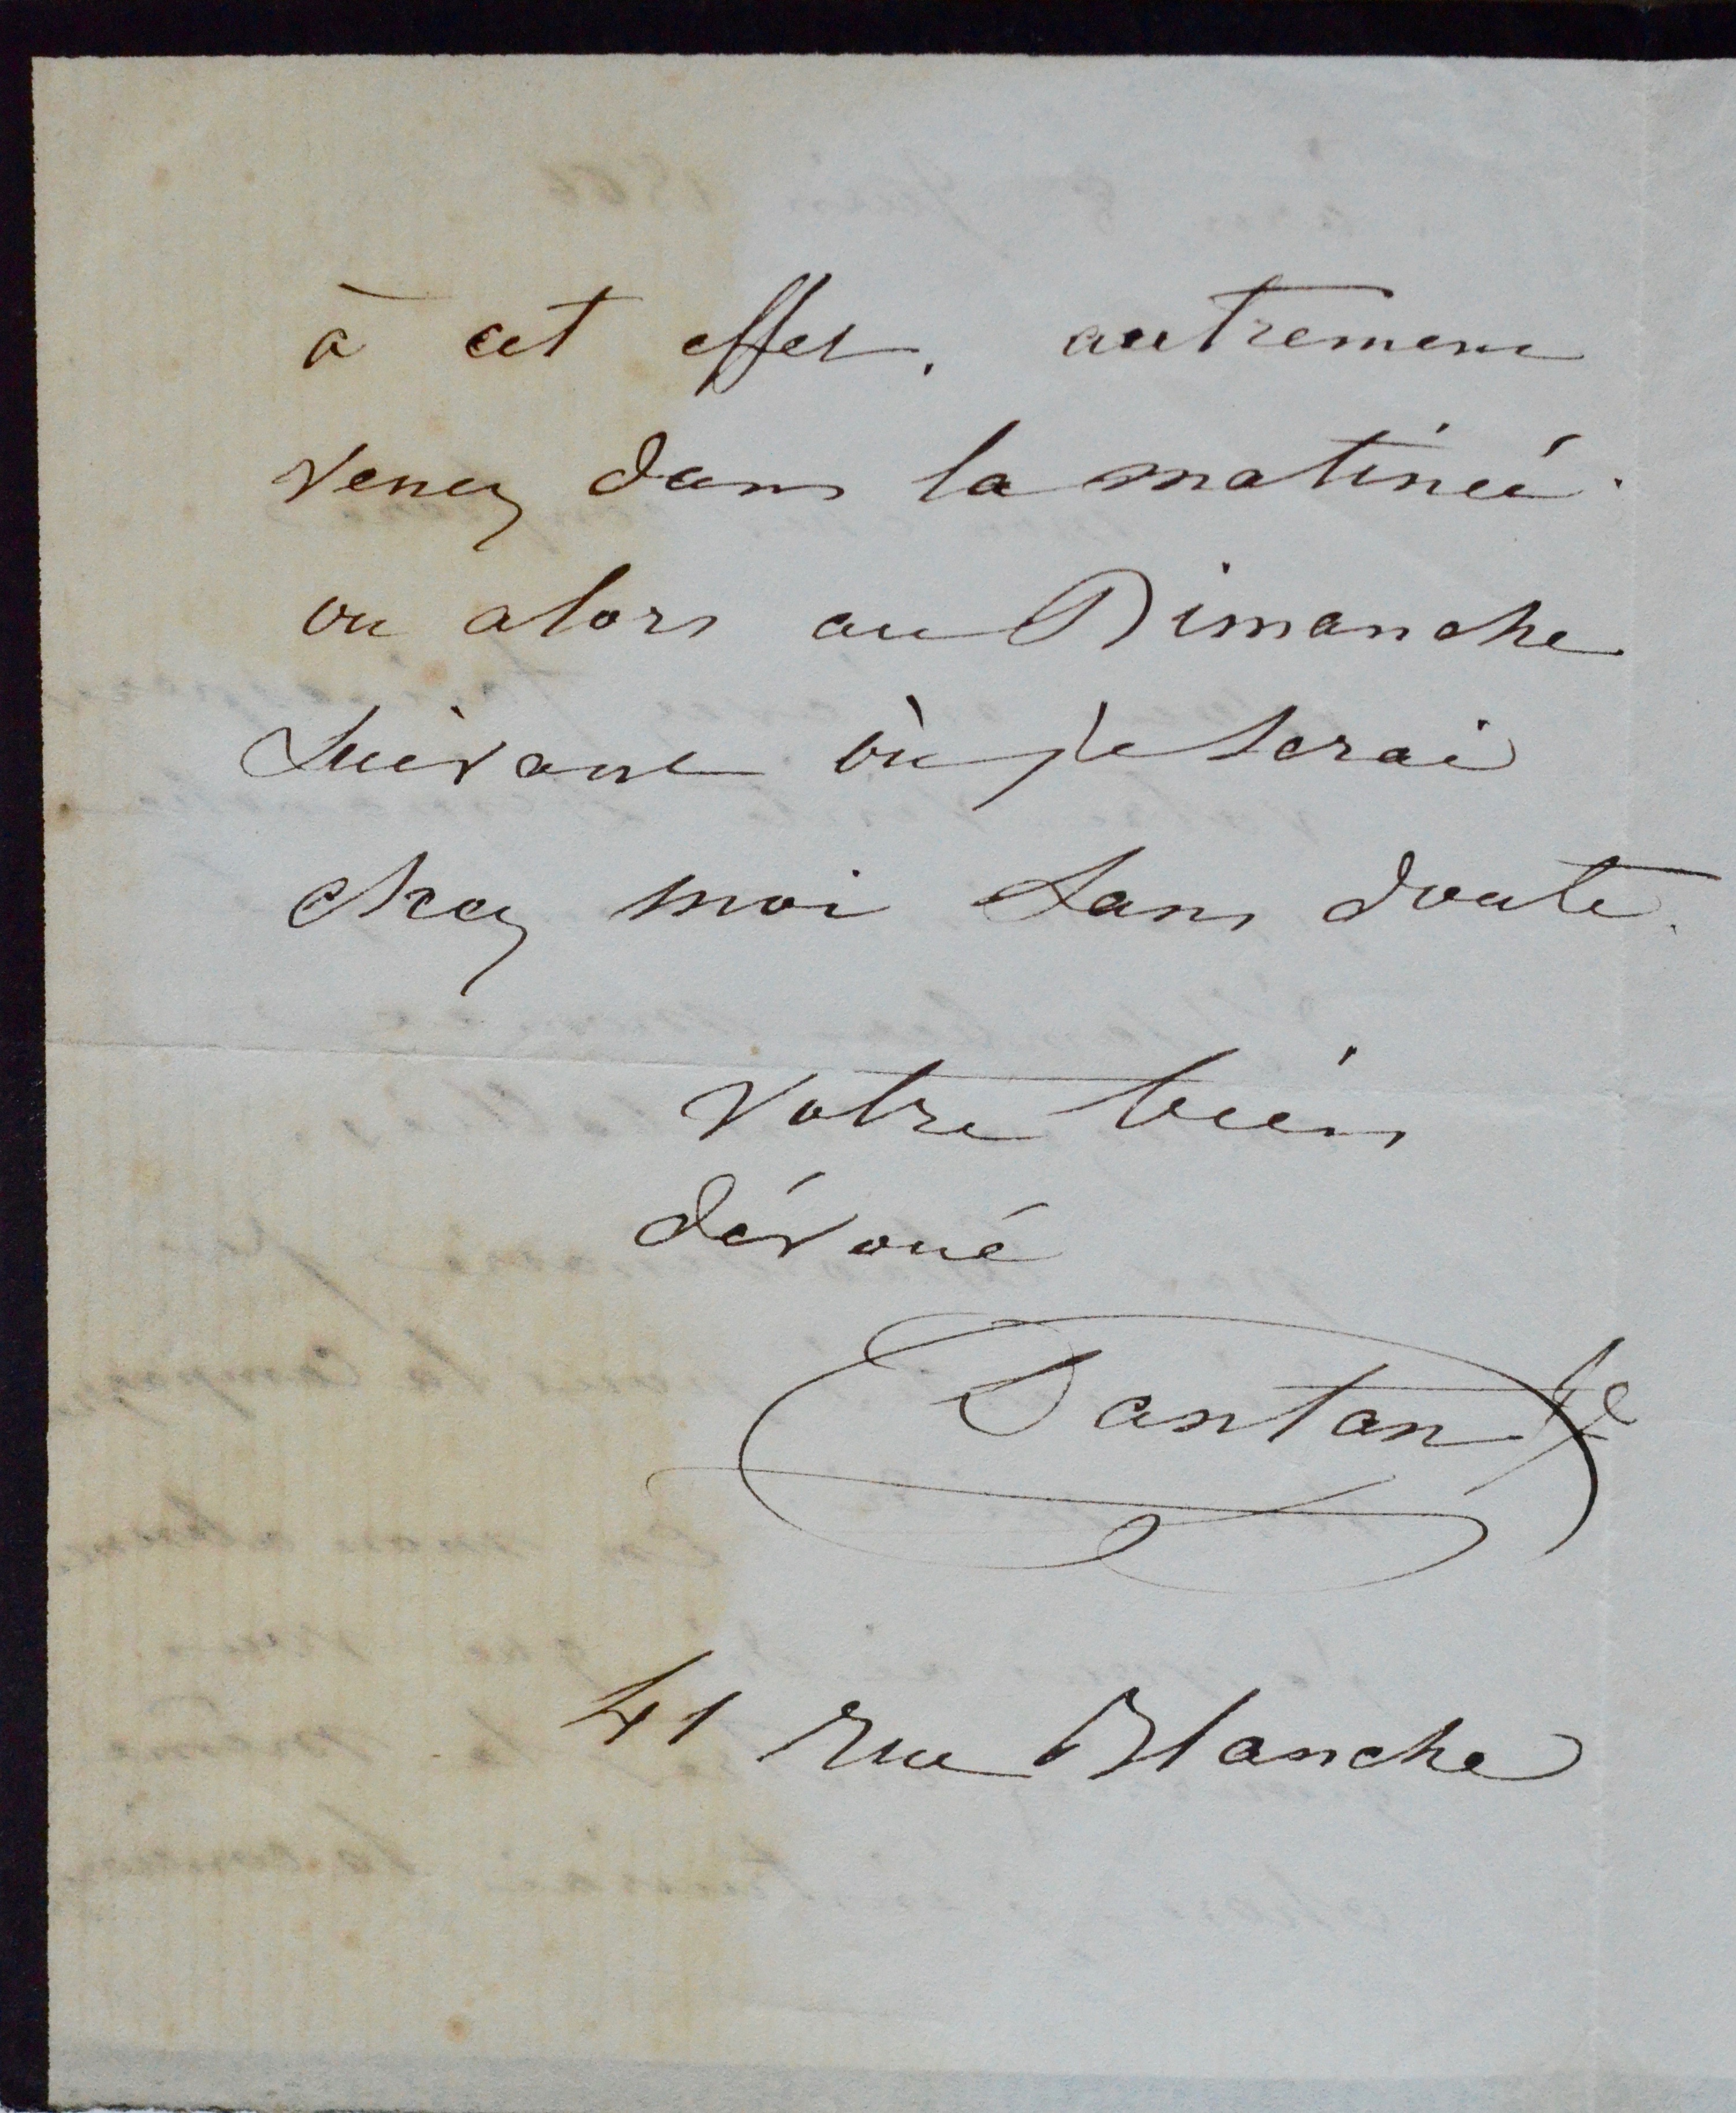 à cet effet. autrement
venez dans la matinée.
ou alors au Dimanche
suivant où je serai
chez moi sans doute.
Votre bien
dévoué
Dantan Je
41 rue Blanche